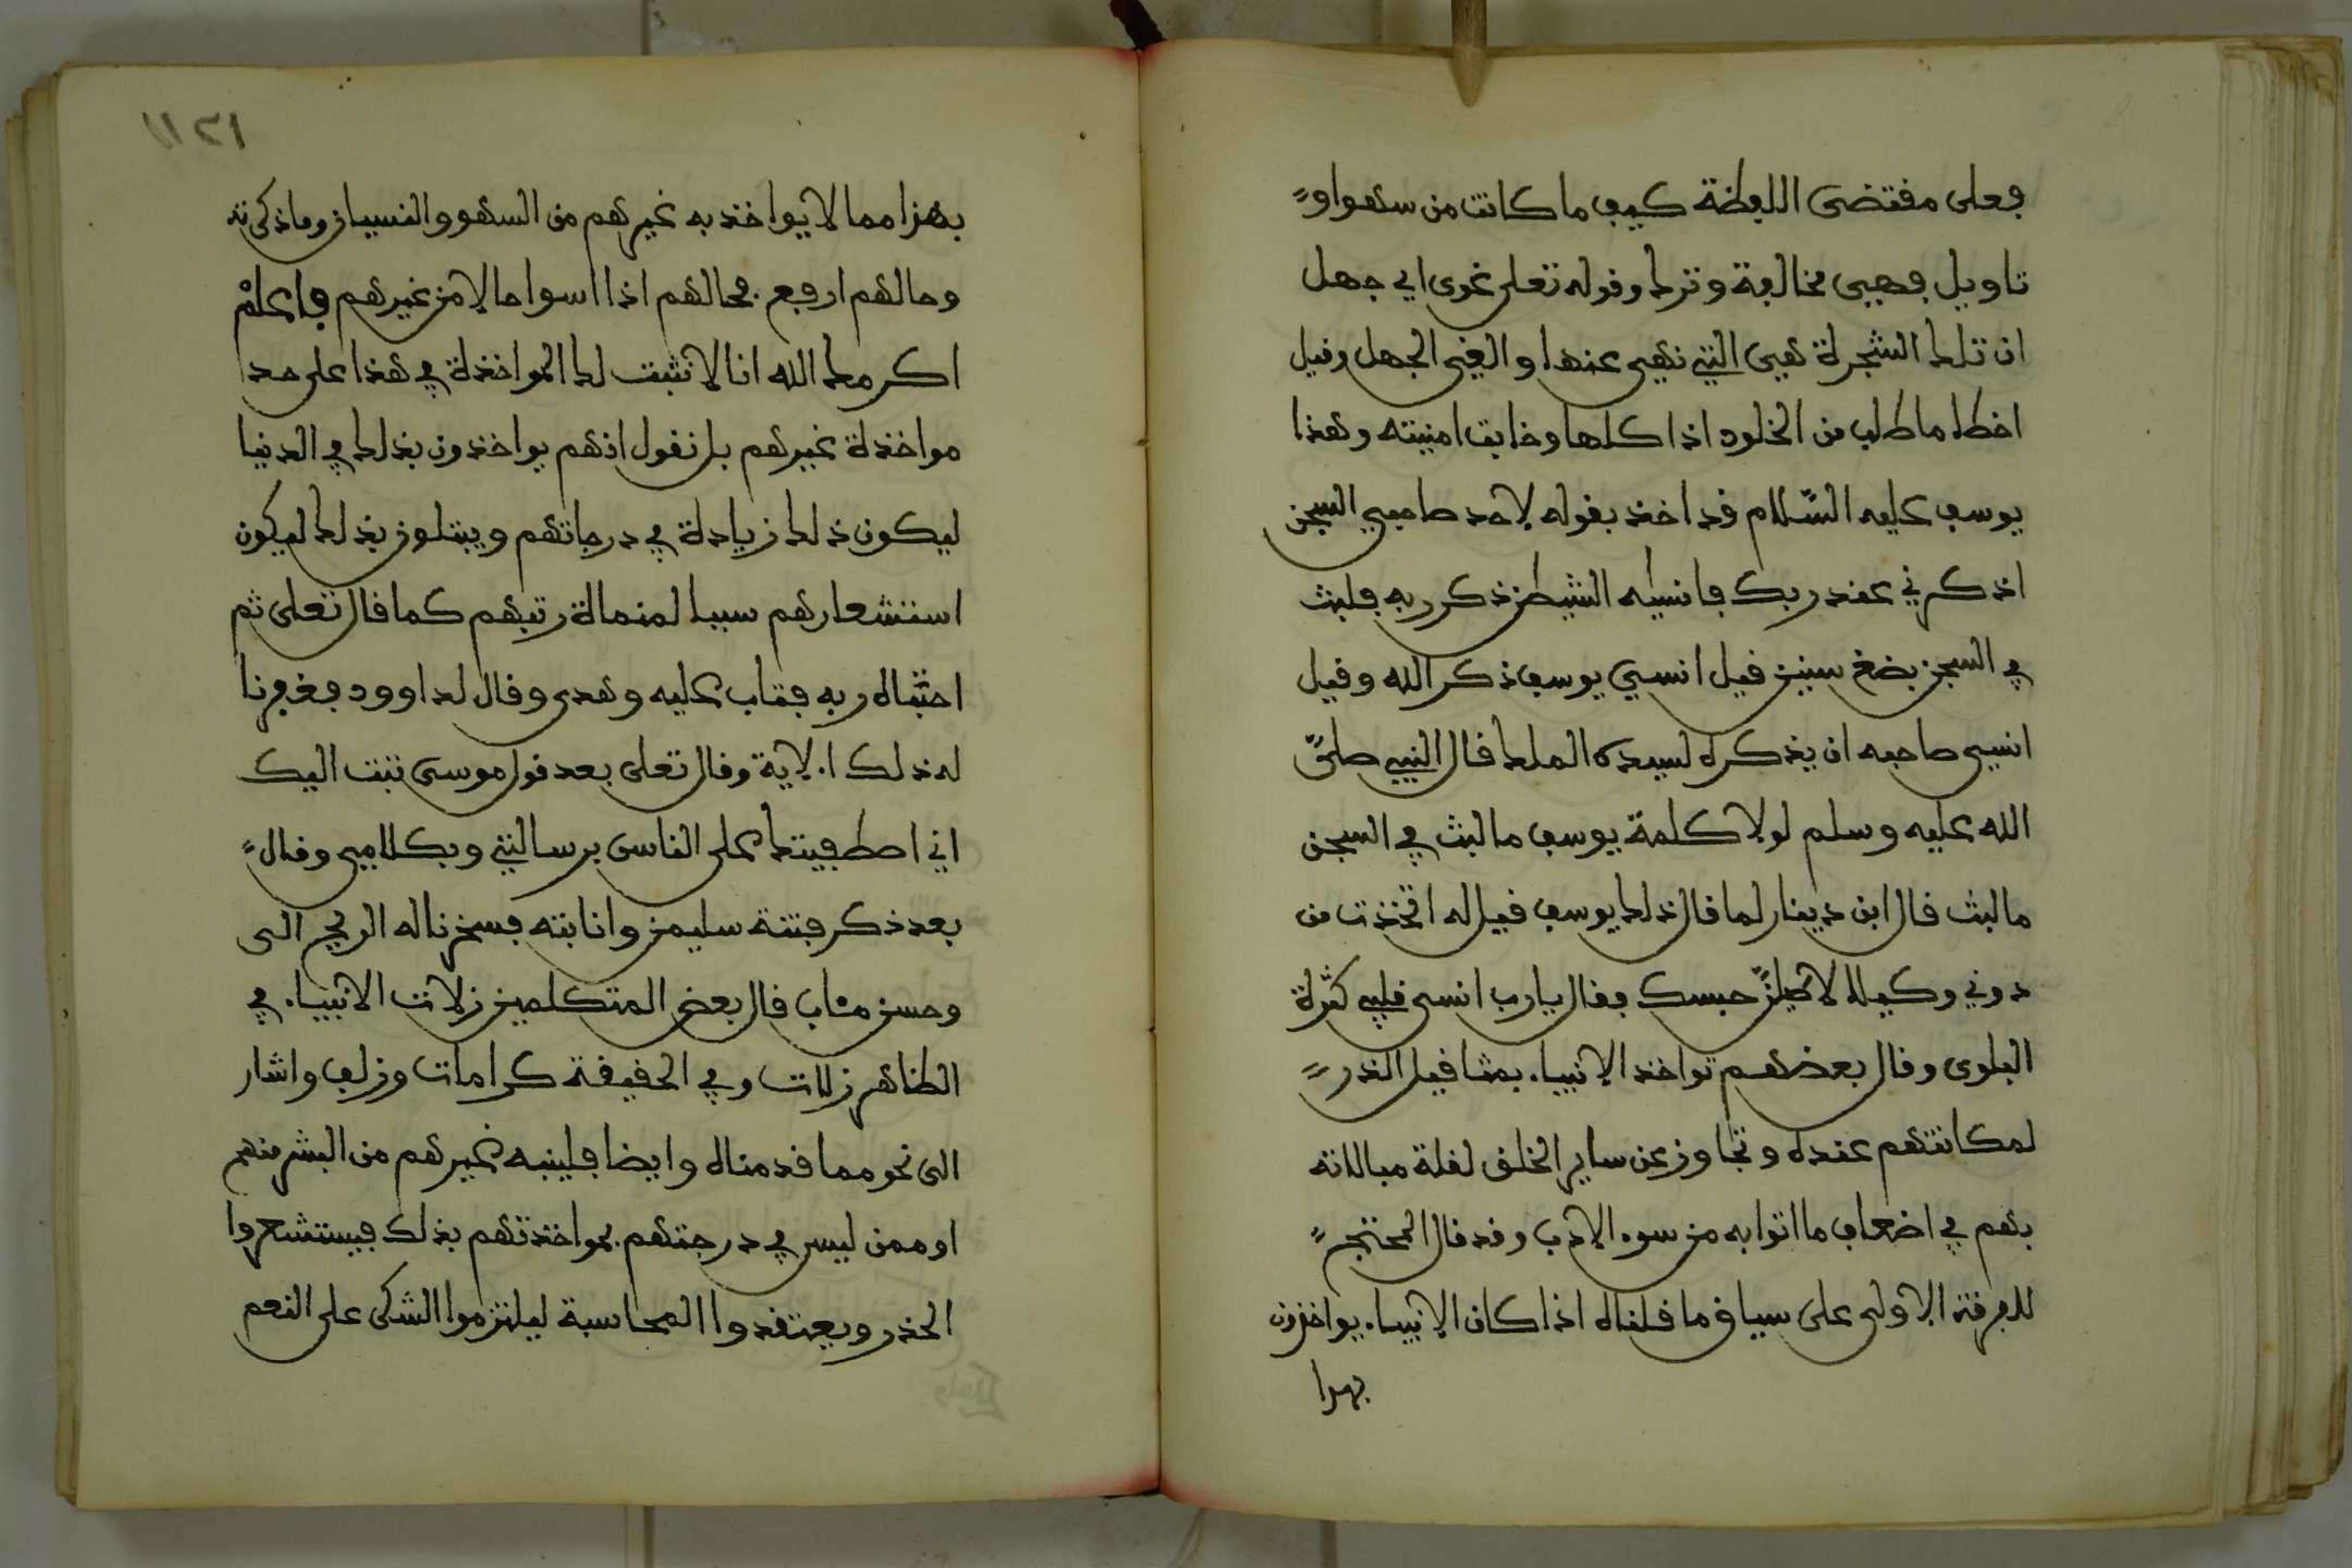 فعلى مقتضى اللفظة كيف ما كانت من سهو او
تاويل فهيى مخالفة وترك وقوله تعلى غوى اي جهل
ان تلك الشجرة هيى التي نهيى عنها والغي الجهل وقيل
اخطا ما طلب من الخلود اذ اكلها وخابت امنيته وهذا
يوسف عليه السلام قد اخذ بقوله لاحد صاحبي السجن
اذكرني عند ربك فانسيه الشيطن ذكر ربه فلبث
في السجن بضع سنين قيل انسي يوسف ذكر الله وقيل
انسي صاحبه ان يذكره لسيده الملك قال النبي صلى
الله عليه وسلم لولا كلمة يوسف ما لبث في السجن
ما لبث قال ابن دينار لما قال ذلك يوسف قيل له اتخذت من
دوني وكيلا لاطيلن حبسك فقال يارب انسى قلبي كثرة
البلوى وقال بعضهم تواخذ الانبياء بمثاقيل الذر
لمكانتهم عنده وتجاوز عن ساير الخلق لقلة مبالاته
بهم في اضعاف ما اتوا به من سوء الادب وقد قال المحتج
للفرقة الاولى على سياق ما قلناه اذا كان الانبياء يواخذون
بهذا
١١٢١
بهذا مما لا يواخذ به غيرهم من السهو والنسيان وما ذكرته
وحالهم ارفع فحالهم اذا اسوا حالا من غيرهم فاعلم
اكرمك الله انا لا نثبت لك المواخذة في هذا على حد
مواخذة غيرهم بل نقول انهم يواخذون بذلك في الدنيا
ليكون ذلك زيادة في درجاتهم ويبتلون بذلك ليكون
استشعارهم سببا لمنماة رتبهم كما قال تعلى ثم
اجتباه ربه فتاب عليه وهدى وقال لداوود فغفرنا
له ذلك الاية وقال تعلى بعد قول موسى تبت اليك
اني اصطفيتك على الناس برسالتي وبكلاميى وقال
بعد ذكر فتنة سليمن وانابته فسخرنا له الريح الى
وحسن مئاب قال بعض المتكلمين زلات الانبياء في
الظاهر زلات وفي الحقيقة كرامات وزلف واشار
الى نحو مما قدمناه وايضا فلينبه غيرهم من البشر منهم
او ممن ليس في درجتهم بمواخذتهم بذلك فيستشعروا
الحذر ويعتقدوا المحاسبة ليلتزموا الشكر على النعم